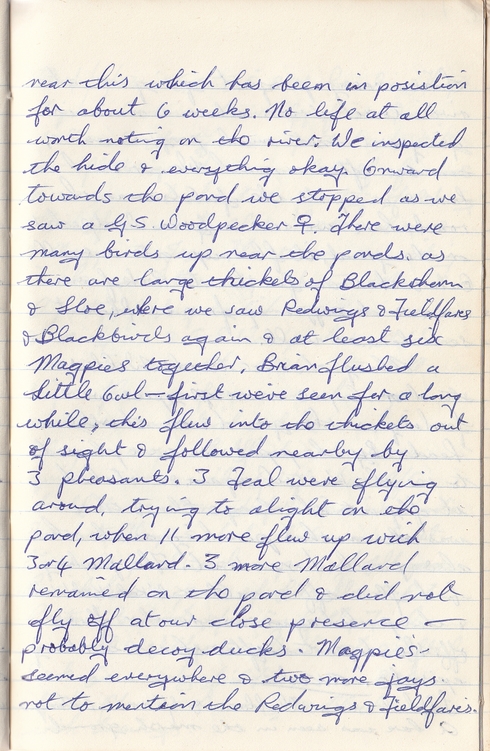 near this which has beem in posistion
for about 6 weeks. No life at all
worth noting on the river. We inspected
the hide & everything okay. Onward
towards the pond we stopped as we
saw a G.S. Woodpecker ♀. There were
many birds up near the ponds. as
there are large thickets of Blackthorn
& Sloe, where we saw Redwings & Fieldfares
& Blackbirds again & at least six
Magpies together, Brian flushed a
Little Owl - first we've seen for a long
while, this flew into the thickets out
of sight & followed nearby by
3 pheasants. 3 Teal were flying
around, trying to alight on the
pond, when 11 more flew up with
3 or 4 Mallard. 3 more Mallard
remained on the pond & did not
fly off at our close presence -
probably decoy ducks. Magpies
seemed everywhere & two more jays.
not to mention the Redwings & Fieldfares.